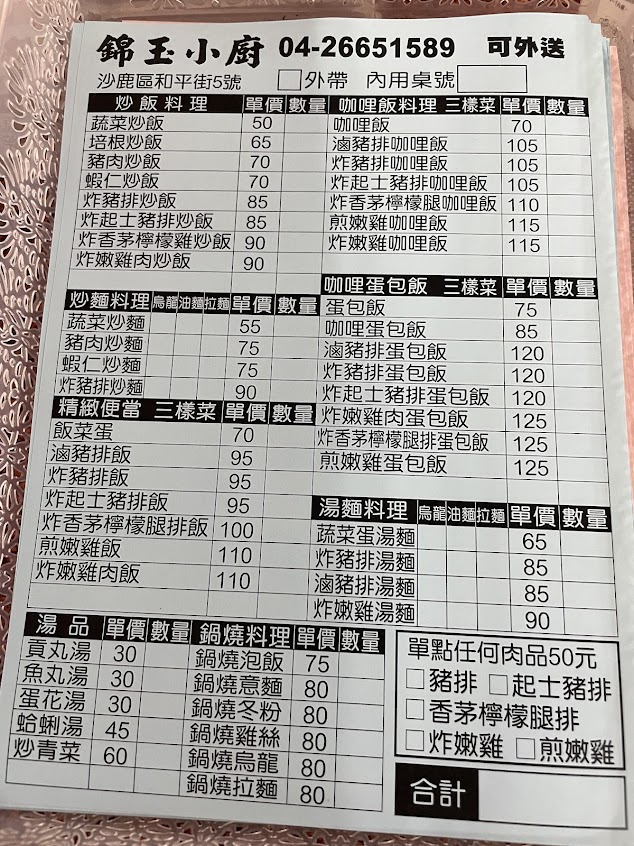 錦玉小廚 04-26651589 可外送
沙鹿區和平街5號 外帶 內用桌號
炒飯料理 單價 數量
蔬菜炒飯 50
培根炒飯 65
豬肉炒飯 70
蝦仁炒飯 70
炸豬排炒飯 85
炸起士豬排炒飯 85
炸香茅檸檬雞炒飯 90
炸嫩雞肉炒飯 90
炒麵料理 烏龍 油麵 拉麵 單價 數量
蔬菜炒麵 55
豬肉炒麵 75
蝦仁炒麵 75
炸豬排炒麵 90
精緻便當 三樣菜 單價 數量
飯菜蛋 70
滷豬排飯 95
炸豬排飯 95
炸起士豬排飯 95
炸香茅檸檬腿排飯 100
煎嫩雞飯 110
炸嫩雞肉飯 110
咖哩飯料理 三樣菜 單價 數量
咖哩飯 70
滷豬排咖哩飯 105
炸豬排咖哩飯 105
炸起士豬排咖哩飯 105
炸香茅檸檬腿咖哩飯 110
煎嫩雞咖哩飯 115
炸嫩雞咖哩飯 115
咖哩蛋包飯 三樣菜 單價 數量
蛋包飯 75
咖哩蛋包飯 85
滷豬排蛋包飯 120
炸豬排蛋包飯 120
炸起士豬排蛋包飯 120
炸嫩雞肉蛋包飯 125
炸香茅檸檬腿排蛋包飯 125
煎嫩雞蛋包飯 125
湯麵料理 烏龍 油麵 拉麵 單價 數量
蔬菜蛋湯麵 65
炸豬排湯麵 85
滷豬排湯麵 85
炸嫩雞湯麵 90
湯品 單價 數量
貢丸湯 30
魚丸湯 30
蛋花湯 30
蛤蜊湯 45
炒青菜 60
鍋燒料理 單價 數量
鍋燒泡飯 75
鍋燒意麵 80
鍋燒冬粉 80
鍋燒雞絲 80
鍋燒烏龍 80
鍋燒拉麵 80
單點任何肉品50元
豬排 起士豬排
香茅檸檬腿排
炸嫩雞 煎嫩雞
合計